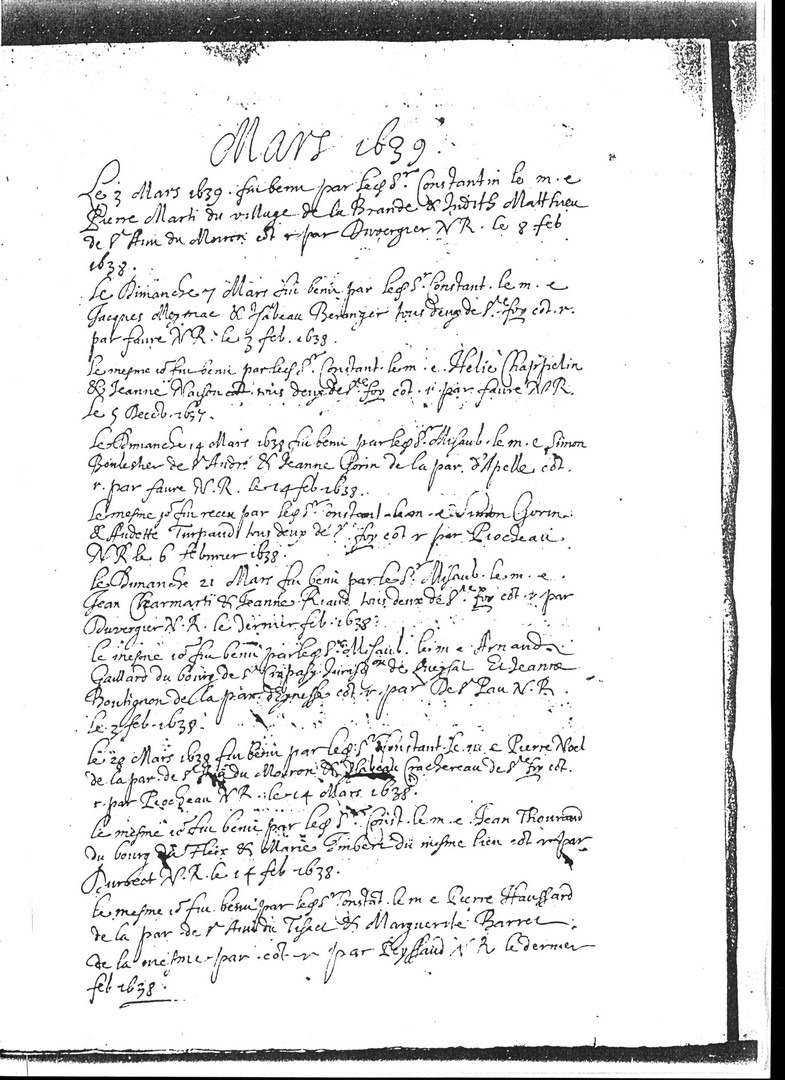 Mars 1639
Le 3 Mars 1639 . fut beni par led Sr Constantin le m . e
Pierre Marti du village de la Brande & Judith Matthieu
de St Avit du Moiron cot r par Duvergier N R . le 8 feb
1638 .
Le Dimanche 7 Mars fut beni par led Sr Constant . le m . e
Jacques & Isabeau Beranger tous deux de Ste foy cot . r .
par faure N R : le 3 feb . 1638 .
Le mesme io fut beni par led Sr Constant . le m . e . Helie Chappelin
& Jeanne tous deux de Ste foy cot . r . par faure N R .
Le 5 Deceb . 1637 .
Le Dimanche 14 Mars 1638 fut beni par led Sr Misaub . le m . e Simon
de St André & Jeanne Gorin de la par . d'Apelle cot .
r . par faure N . R . le 14 feb . 1638 .
le mesme io fut receu par led Sr Constant . le m . e Simon Gorin
& Audette Turpaud tous deux de Ste foy cot r par Rocheau
N R le 6 februrier 1638 .
Le Dimanche 21 Mars fut beni par le Sr Misaub . le m . e .
Jean Charmarti & Jeanne Riaud tous deux de Ste foy cot . r par
Duvergier N . R . le dernier feb . 1638 .
le mesme io fut beni par led Sr Misaub . le m e Arnaud
Gaillard du bourg de St Jurisdon de & Jeanne
Boutignon de la par . cot . r . par De St Pau N . R .
le 3 feb . 1638 .
Le 28 Mars 1638 fut beni par led Sr Constant . le m . e Pierre Noel
de la par . de St Avit du Moiron & Isabeau Crachereau de Ste foy cot .
r . par Rocheau N R . le 14 Mars 1638 .
le mesme io fut beni par led Sr Const . le m . e Jean Thourand
du bourg du Fleix & Marie Imbert du mesme lieu cot r par
Durbect N . R . le 14 feb 1638 .
le mesme io fut beni par led Sr Constat . le m e Pierre Haussard
de la par de St Avit du Tizac & Marguerite Barret
de la mesme par cot r par Peyssaud N R le dernier
feb 1638 .